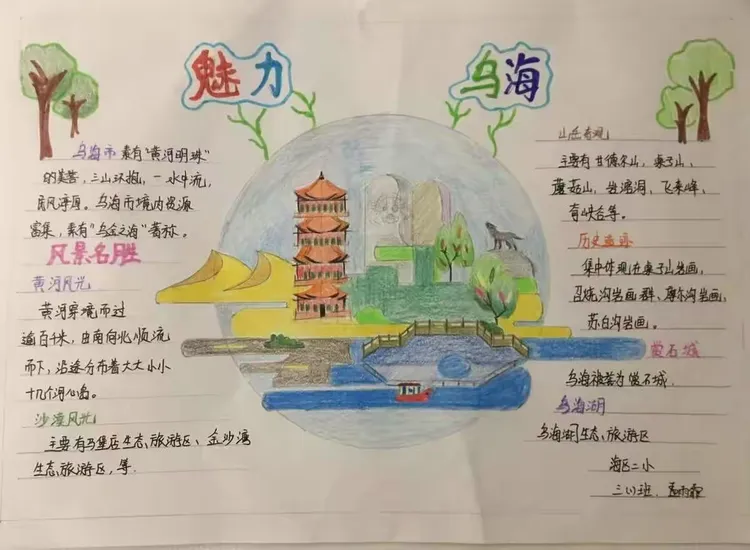 魅力
乌海
乌海市素有"黄河明珠"
的美誉,三山环抱,一水中流,
民风淳厚。乌海市境内资源
富集,素有"乌金之海"著称。
风景名胜
黄河风光
黄河穿境而过
逾百千米,由南向北顺流
而下,沿途分布着大大小小
十几个河心岛。
沙漠风光
主要有马堡店生态旅游区、金沙湾
生态旅游区,等.
山岳奇观
主要有甘德尔山,桌子山,
蘑菇山,坐禅洞、飞来峰,
等。
历史遗迹
集中体现在桌子山岩画,
召烧沟岩画群、摩尔沟岩画,
苏白沟岩画。
萤石城
乌海被誉为萤石城.
乌海湖
乌海湖生态旅游区
海区二小
三(1)班.